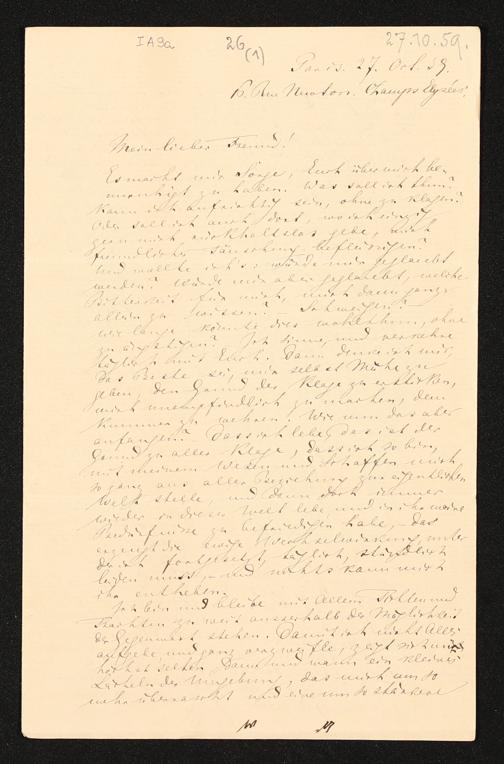 IA9a 26 (1) 27.10.59.
Paris. 27. Oct. 59.
16. Rue Newton. Champs Elysées.
Mein lieber Freund!
Es macht mir Sorge, Euch über mich be-
unruhigt zu haben. Was soll ich thun?
Kann ich aufrichtig sein, ohne zu klagen?
Oder soll ich auch dort, wo ich einzig
gern mich rückhaltslos gebe, mich
freundlicher Täuschung befleissigen?
Und wollte ich's: würde mir geglaubt
werden? Würde mir aber geglaubt, welche
Bitterkeit für mich, mich dann ganz
allein zu wissen! Schweigen?
wie lange könnte dies wohl thun, ohne
zu ängstigen? Ich sinne, und verkehre
täglich mit Euch. Dann denke ich mir,
das Beste sei, mir selbst Mühe zu
geben, den Grund der Klage zu ersticken,
mich unempfindlich zu machen, dem
Kummer zu wehren. Wie nun das aber
anfangen? Dass ich lebe, das ist der
Grund zu aller Klage; dass ich so bin,
mit meinem Wesen und Schaffen mich
so ganz aus aller Beziehung zur eigentlichen
Welt stelle, und denn doch immer
wieder in dieser Welt lebe, und in ihr meine
Bedürfnisse zu befriedigen habe, – das
erzeugt die ewige Wechselwirkung, unter
der ich fortgesetzt, täglich, stündlich
leiden muss, – und nichts kann mich
ihr entheben.
Ich bin und bleibe mit Allem Tichten und
Trachten zu weit ausserhalb der Möglichkeit
der Gegenwart stehen. Damit ich nicht Alles
aufgebe und ganz verzweifle, zeigt sich mir
höchst selten, dann und wann ein kleines
Lächeln der Umgebung, das mich um so
mehr überrascht und eine um so stärkere